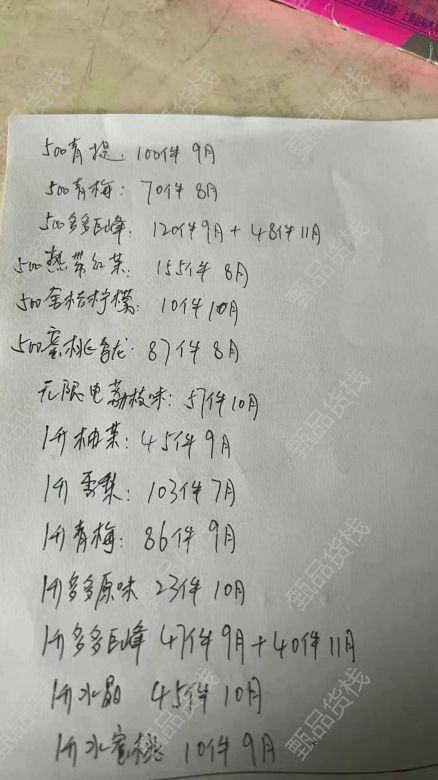 500青提：100件9月
500青梅：70件8月
500多多巨峰：120件9月+48件11月
500热带红茶：155件8月
500金桔柠檬：10件10月
500蜜桃乌龙：87件8月
无限电荔枝味：57件10月
1升柚茶：45件9月
1升雪梨：103件7月
1升青梅：86件9月
1升多多原味 23件10月
1升多多巨峰 47件9月+40件11月
1升水晶 45件10月
1升水蜜桃 10件9月
甄品货栈